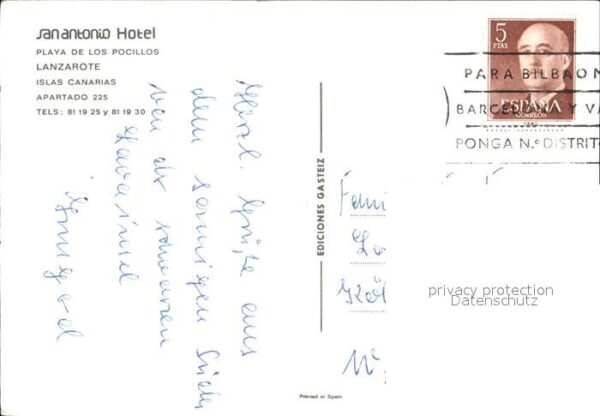 san antonio Hotel
PLAYA DE LOS POCILLOS
LANZAROTE
ISLAS CANARIAS
APARTADO 225
TELS: 81 19 25 y 81 19 30
Herzl. Grüße aus
dem sonnigen Süden
von der schwarzen
Lavainsel
Irmgard
EDICIONES GASTEIZ
5
PTAS
ESPAÑA
CORREOS
PARA BILBAO M
BARCELONA Y VA
PONGA N.º DISTRITO
Fami
Kö
privacy protection
Datenschutz
Printed in Spain